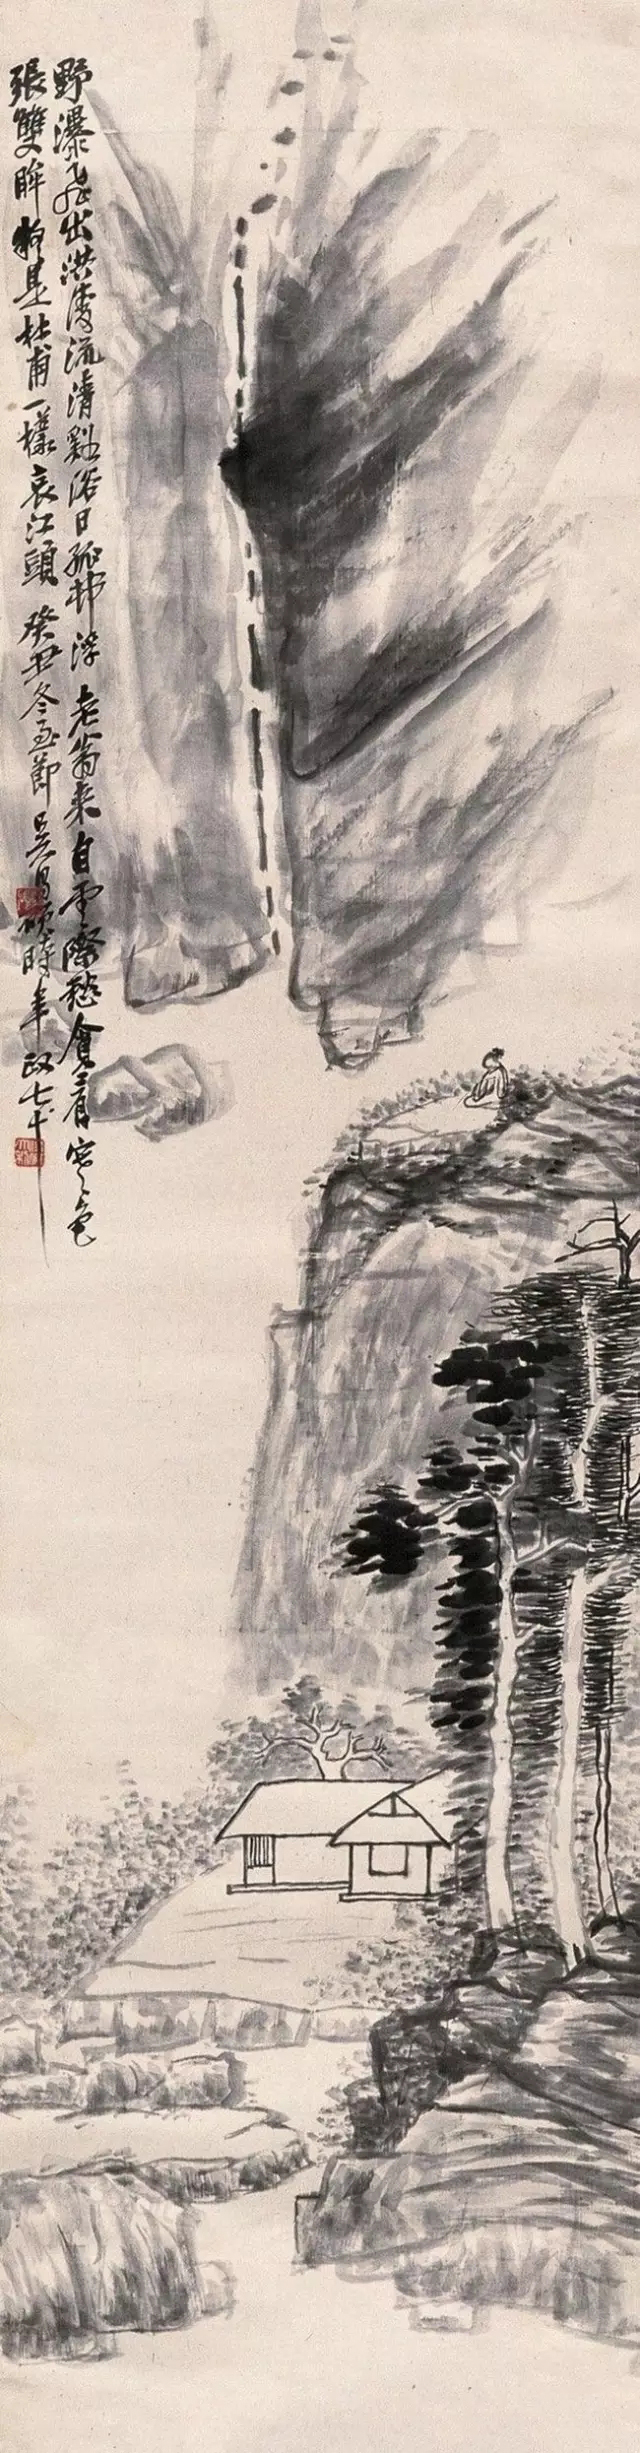 野瀑飛出洪流清谿浴日孤邨浮老翁來自雲際愁貪看色
張雙眸是杜甫一樣哀江頭 癸丑冬至節 吳昌碩時年政七十